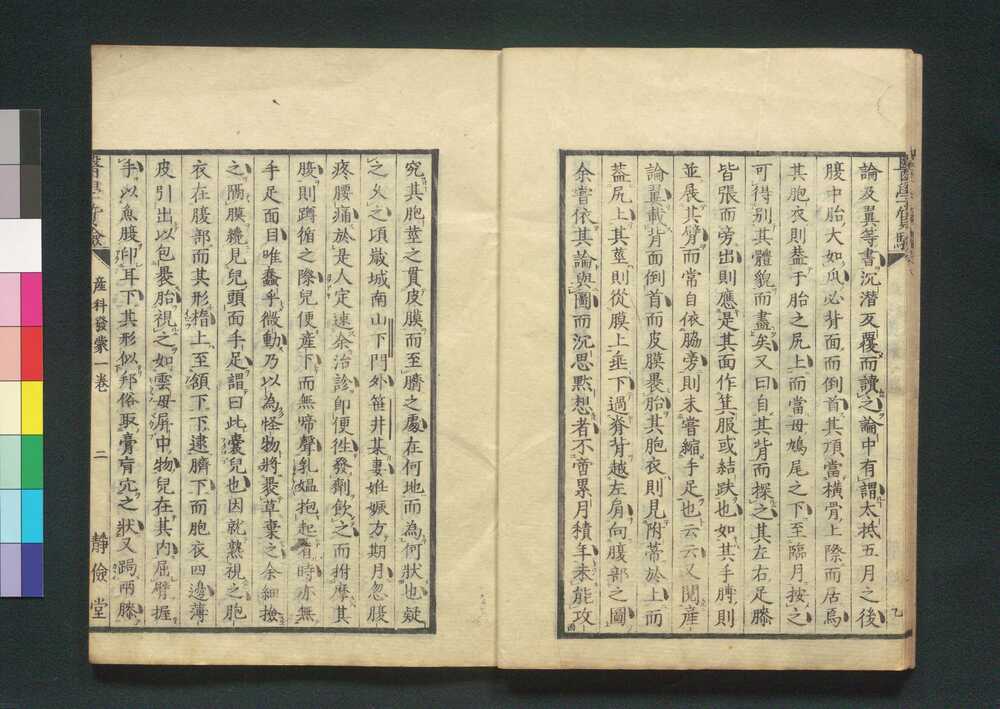 論及翼等書沉潛反覆而讀之論中有謂大抵五月之後
腹中胎大如瓜必背面而倒首其頂當橫骨上際而居焉
其胞衣則蓋于胎之尻上而當母鳩尾之下至臨月按之
可得別其體貌而盡矣又曰自其背而探之其左右足膝
皆張而旁出則應是其面作箕服或結趺也如其手臂則
並展其臂而常自依脇旁則未嘗縮手足也云云又閱產
論翼載背面倒首而皮膜裹胎其胞衣則見附蒂於上而
蓋尻上其莖則從膜上垂下過脊背越左肩向腹部之圖
余嘗依其論與圖而沉思默想者不啻累月積年未能攻
究其胞莖之貫皮膜而至臍之處在何地而為何狀也疑
之久之頃嚴城南山下門外笹井某妻姙娠方期月忽腹
疼腰痛於是人定速余治診卽便徃發劑飲之而拊摩其
腹則蹲循之際兒便產下而無啼聲乳媼抱起看時亦無
手足面目唯蠢乎微動乃以為怪物將裹草棄之余細撿
之隔膜纔見兒頭面手足謂曰此囊兒也因就熟視之胞
衣在腹部而其形橢上至頷下下逮臍下而胞衣四邊薄
皮引出以包裹胎視之如雲母屏中物兒在其內屈臂握
手以魚腹印耳下其形似邦俗取膏肓穴之狀又跼兩膝
產科發蒙一卷
二
靜儉堂